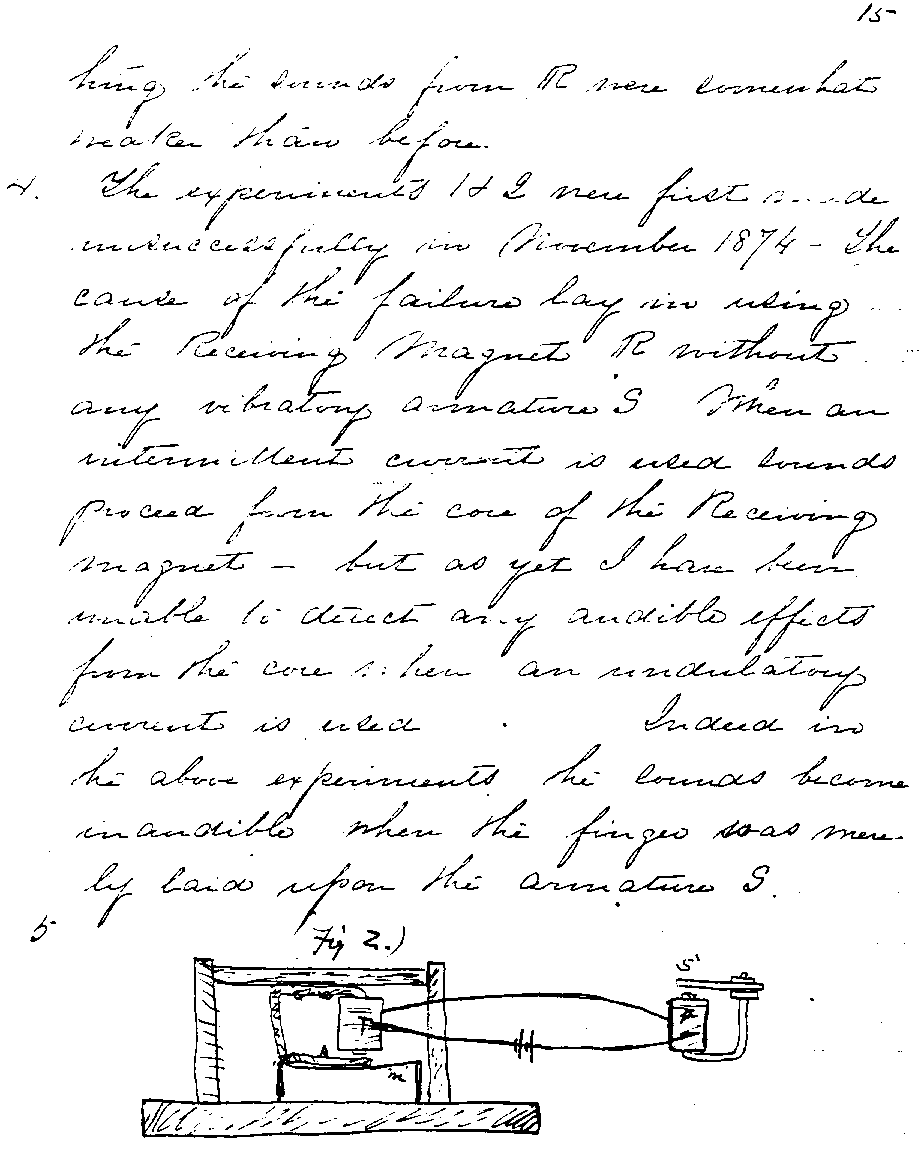 15
hing the sounds from R were somewhat
weaker than before.
4. The experiments 1 & 2 were first made
unsuccessfully in November 1874 - The
cause of the failure lay in using
the Receiving Magnet R without
any vibratory armature S When an
intermittent current is used sounds
proceed from the core of the Receiving
magnet - but as yet I have been
unable to detect any audible effects
from the core when an undulatory
current is used. Indeed in
the above experiments the sounds become
inaudible when the finger was mere-
ly laid upon the armature S.
5 Fig 2.)
S'
T
R
A
m